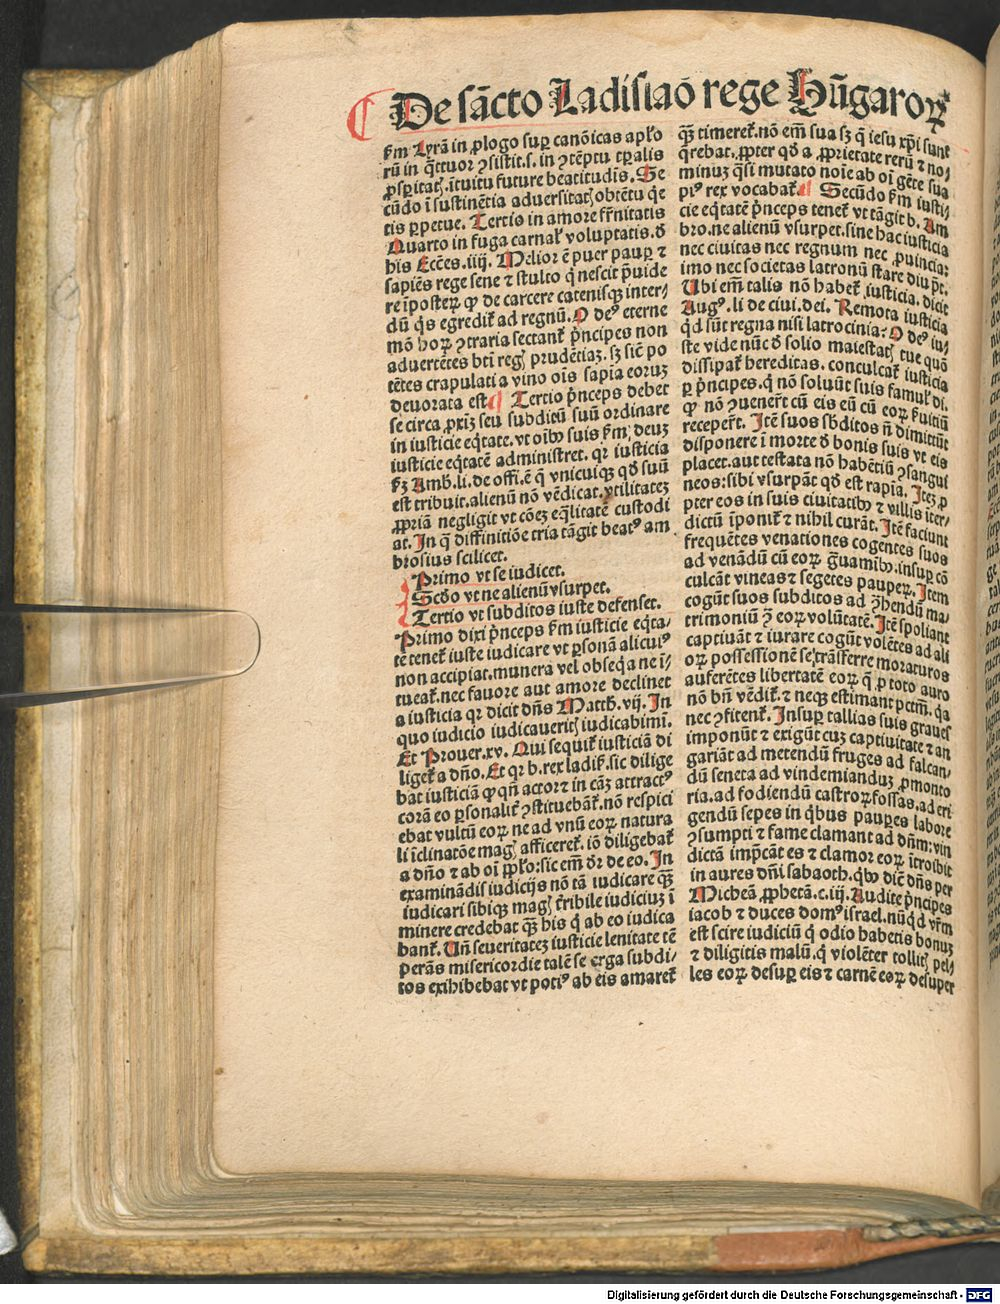 De sācto Ladislao rege Hūgaroꝝ
ẜm Lyrā in ꝓlogo suꝑ canōicas apl'o
rū in q̄ttuor ꝯsistit. s. in ꝯtēptu tp̄alis
ꝓsꝑitatꝭ. ītuitu future beatitudis. Se
cūdo ī sustinētia aduersitatꝭ obtētu q̄e
tis ꝑpetue. Tertio in amore fr̄nitatis
Quarto in fuga carnal' voluptatis. ð
his Eccēs. iiij. Melior ē puer pauꝑ ⁊
sapiēs rege sene ⁊ stulto q̇ nescit p̄uide
re īposteꝝ ꝙ de carcere catenisqꝫ inter⸗
dū q̇s egredit̄ ad regnū. O deꝰ eterne
mō hoꝝ ꝯtraria sectant̄ p̄ncipes non
aduertētes bt̄i regꝭ prudētiaꝫ. sꝫ sic̄ po
tētes crapulati a vino oīs sapīa eoruꝫ
deuorata est ¶ Tertio p̄nceps debet
se circa ꝓxīꝫ seu subditū suū ordinare
in iusticie eq̇tate. vt oībꝰ suis ẜm deuꝫ
iusticie eq̇tatē administret. qr iusticia
ẜꝫ Amb. li. de offi. ē q̄ vnicuiqꝫ qð suū
est tribuit. alienū nō vēdicat. vtilitateꝫ
ꝓpriā negligit vt cōeꝫ eq̄litatē custodi
at. In q̄ diffinitiōe tria tāgit beatꝰ am
brosius scilicet.
Primo vt se iudicet.
Scðo vt ne alienū vsurpet.
Tertio vt subditos iuste defenset.
Primo dixi p̄nceps ẜm iusticie eq̇ta⸗
tē tenet̄ iuste iudicare vt ꝑsonā alicuiꝰ
non accipiat. munera vel obseq̇a ne ī⸗
tueat̄. nec fauore aut amore declinet
a iusticia qr dicit dn̄s Matth. vij. In
quo iudicio iudicaueritꝭ iudicabimī.
Et Prouer. xv. Qui sequit̄ iusticiā di
liget̄ a dn̄o. Et qr b. rex ladisl'. sic dilige
bat iusticiā ꝙ qn̄ actor⁊ in cāꝫ attractꝰ
corā eo ꝑsonalit̄ ꝯstituebāt̄. nō respici
ebat vultū eoꝝ ne ad vnū eoꝝ natura
li īclinatōe magꝭ afficeret̄. iō diligebat̄
a dn̄o ⁊ ab oī pp̄lo: sic em̄ dr̄ de eo. In
examinādis iudicijs nō tā iudicare qꝫ̄
iudicari sibiqꝫ magꝭ t̄ribile iudiciuꝫ ī
minere credebat qꝫ̄ his q̇ ab eo iudica
bant̄. Un̄ seueritateꝫ iusticie lenitate tē
perās misericordie talē se erga subdi⸗
tos exihibebat vt potiꝰ ab eis amaret̄
qꝫ̄ timeret̄. nō em̄ sua sꝫ q̄ iesu xp̄i sunt
q̄rebat. ꝓpter qð a ꝓprietate rerū ⁊ no⸗
minuꝫ q̄si mutato noīe ab oī gēte sua
piꝰ rex vocabat̄. ¶ Secūdo ẜm iusti⸗
cie eq̇tatē p̄nceps tenet̄ vt tāgit b. Am
bro. ne alienū vsurpet. sine hac iusticia
nec ciuitas nec regnum nec ꝓuincia:
imo nec societas latronū stare diu pōt.
Ubi em̄ talis nō habet̄ iusticia. dicit
Augꝰ. li. de ciui. dei. Remota iusticia
qd sūt regna nisi latrocinia? O deꝰ iu⸗
ste vide nūc ð solio maiestatꝭ tue quō
dissipat̄ hereditas. conculcat̄ iusticia
ꝑ p̄ncipes. q̇ nō soluūt suis famul' di.
ꝙ nō ꝯuenert̄ cū eis eū cū eoꝝ ẜuitiū
recepert̄. Itē suos sb̄ditos n̄ dimittūt
disponere ī morte ð bonis suis vt eis
placet. aut testata nō habētiū ꝯsangui
neos: sibi vsurpāt qð est rapīa. Iteꝫ ꝓ
pter eos in suis ciuitatibꝰ ⁊ villis iter⸗
dictū īponit̄ ⁊ nihil curāt. Itē faciunt
frequētes venationes cogentes suos
ad venādū cū eoꝝ ḡuamibꝰ. insuꝑ cō
culcāt vineas ⁊ segetes pauꝑeꝝ. Item
cogūt suos subditos ad ꝯ̄hendū ma⸗
trimoniū ꝯ̄ eoꝝ volūtatē. Itē spoliant
captiuāt ⁊ iurare cogūt volētes ad ali
oꝝ possessionē se trāsferre moraturos
auferētes libertatē eoꝝ q̄ ꝓ toto auro
nō bn̄ vēdit̄. ⁊ neqꝫ estimant pctm̄. q̇a
nec ꝯfitent̄. Insuꝑ tallias suis graueſ
imponūt ⁊ exigūt cuꝫ captiuitate ⁊ an
gariāt ad metendū fruges ad falcan⸗
dū feneta ad vindemianduꝫ ꝓmonto
ria. ad fodiendū castroꝝ fossas. ad eri
gendū sepes in q̇bus pauꝑes labore
ꝯsumpti ⁊ fame clamant ad dn̄m: vin
dictā imp̄cātes ⁊ clamor eoꝝ ītroibit
in aures dn̄i sabaoth. q̇bꝰ dic̄ dn̄s per
Micheā ꝓphetā. c. iij. Audite p̄ncipes
iacob ⁊ duces domꝰ israel. nūq̇d vr̄m
est scire iudiciū q̇ odio habetis bonuꝫ
⁊ diligitis malū. q̇ violēter tollitꝭ pel⸗
les eoꝝ desuꝑ eis ⁊ carnē eoꝝ desuper
Digitalisierung gefördert durch die Deutsche Forschungsgemeinschaft - DFG